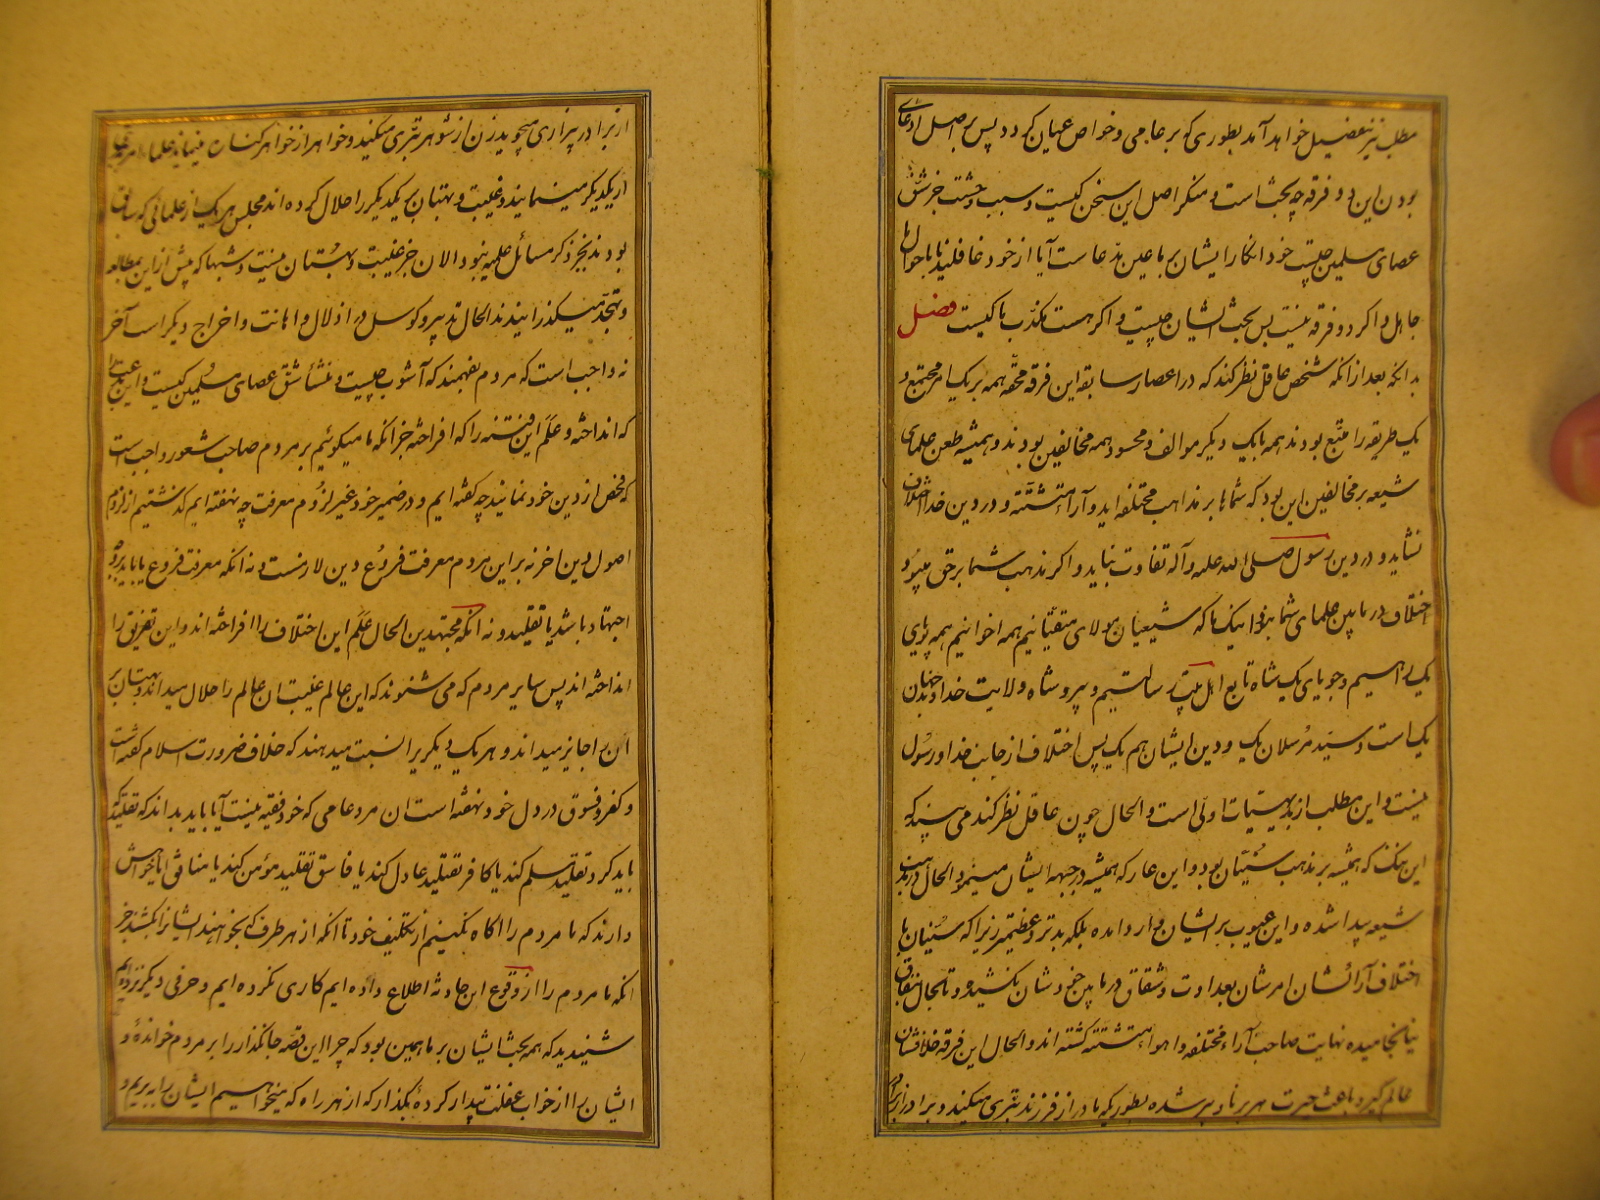 مطلب نیز تفصیل خواهد آمد بطوری که بر عامی و خواص عیان گردد پس بر اصل ادعای
بودن این دو فرقه چه بحث است و منکر اصل این سخن کیست و سبب وحشت جز شق
عصای مسلمین چیست خود انکار ایشان بر ما عین مدعاست آیا از خود غافلند یا باحوال ما
جاهل و اگر دو فرقه نیست پس بحث ایشان چیست و اگر هست مکذب ما کیست فصل
بدانکه بعد از آنکه شخص عاقل نظر کند که در اعصار سابقه این فرقه محقه همه بر یک امر مجتمع و
یک طریقه را متبع بودند همه با یک دیگر موالف و محسود همه مخالفین بودند و همیشه طعن علمای
شیعه بر مخالفین این بود که شماها بر مذاهب مختلفه اید و آراء متشتته و در دین خدا اختلاف
نشاید و در دین رسول صلی الله علیه و آله تفاوت نباید و اگر مذهب شما بر حق میبود
اختلاف در مابین علمای شما نبود اینک ما که شیعیان مولای متقیانیم همه اخوانیم همه پویای
یک راهیم و جویای یک شاه تابع اهل بیت رسالتیم و پیرو شاه ولایت خداوند جهان
یک است و سید مرسلان یک و دین ایشان هم یک پس اختلاف از جانب خدا و رسول
نیست و این مطلب از بدیهیات اولی است و الحال چون عاقل نظر کند می بیند که
این ننگ که همیشه بر مذهب سنیان بود و این عار که همیشه در جبهه ایشان مینمود الحال در مذهب
شیعه پیدا شده و این عیوب بر ایشان وارد آمده بلکه بدتر و عظیمتر زیرا که سنیان با
اختلاف آرائشان امرشان بعداوت و شقاق در مابین خودشان نکشید و تا بحال بنفاق
نیانجامیده نهایت صاحب آراء مختلفه و اهواء متشتته گشته اند و الحال این فرقه خلافشان
عالم گیر و باعث حیرت هر برنا و پیر شده بطوریکه مادر از فرزند تبری میکند و برادر از برادر
از برادر بیزاری میجوید زن از شوهر تبری میکنید و خواهر از خواهر کناره مینماید علما
از یکدیگر مینمایند و غیبت و بهتان بر یکدیگر را حلال کرده اند مجلس هر یک از علمائی که سابق
بودند بجز ذکر مسائل علمیه نبود و الان جز غیبت و بهتان نیست و شبها که پیش از این بمطالعه
و تهجد میگذرانیدند الحال تدبیر و کوسل در اذلال و اهانت و اخراج دیگر است آخر
نه واجب است که مردم بفهمند که آشوب چیست و منشأ شق عصای مسلمین کیست و این بدعت را
که انداخته و علم این فتنه را که افراخته جز آنکه ما میگوئیم بر مردم صاحب شعور واجب است
که فحص از دین خود نمایند چه گفته ایم و در ضمیر خود غیر لزوم معرفت چه نهفته ایم گذشتیم از لزوم
اصول دین آخر نه بر این مردم معرفت فروع دین لازمست و نه آنکه معرفت فروع یا باید بروجه
اجتهاد باشد یا تقلید و نه آنکه مجتهدین الحال علم این اختلاف را افراخته اند و این تفریق را
انداخته اند پس سایر مردم که می شنوند که این عالم غیبت آن عالم را حلال میداند و بهتان بر
آن را جایز میداند و هر یک دیگریرا نسبت میدهند که خلاف ضرورت اسلام گفته است
و کفر و فسوق در دل خود نهفته است آن مرد عامی که خود فقیه نیست آیا باید بداند که تقلید که
باید کرد تقلید مسلم کند یا کافر تقلید عادل کند یا فاسق تقلید مؤمن کند یا منافق آیا خواهش
دارند که ما مردم را آگاه نکنیم از تکلیف خود تا آنکه از هر طرف که بخواهند ایشانرا بکشند جز
آنکه ما مردم را از وقوع این حادثه اطلاع داده ایم کاری نکرده ایم و حرفی دیگر نزده ایم
شنیدید که همه بحث ایشان بر ما همین بود که چرا این قصه جانگداز را بر مردم خوانده و
ایشان را از خواب غفلت بیدار کرده بگذار که از هر راه که میخواهیم ایشان را ببریم و